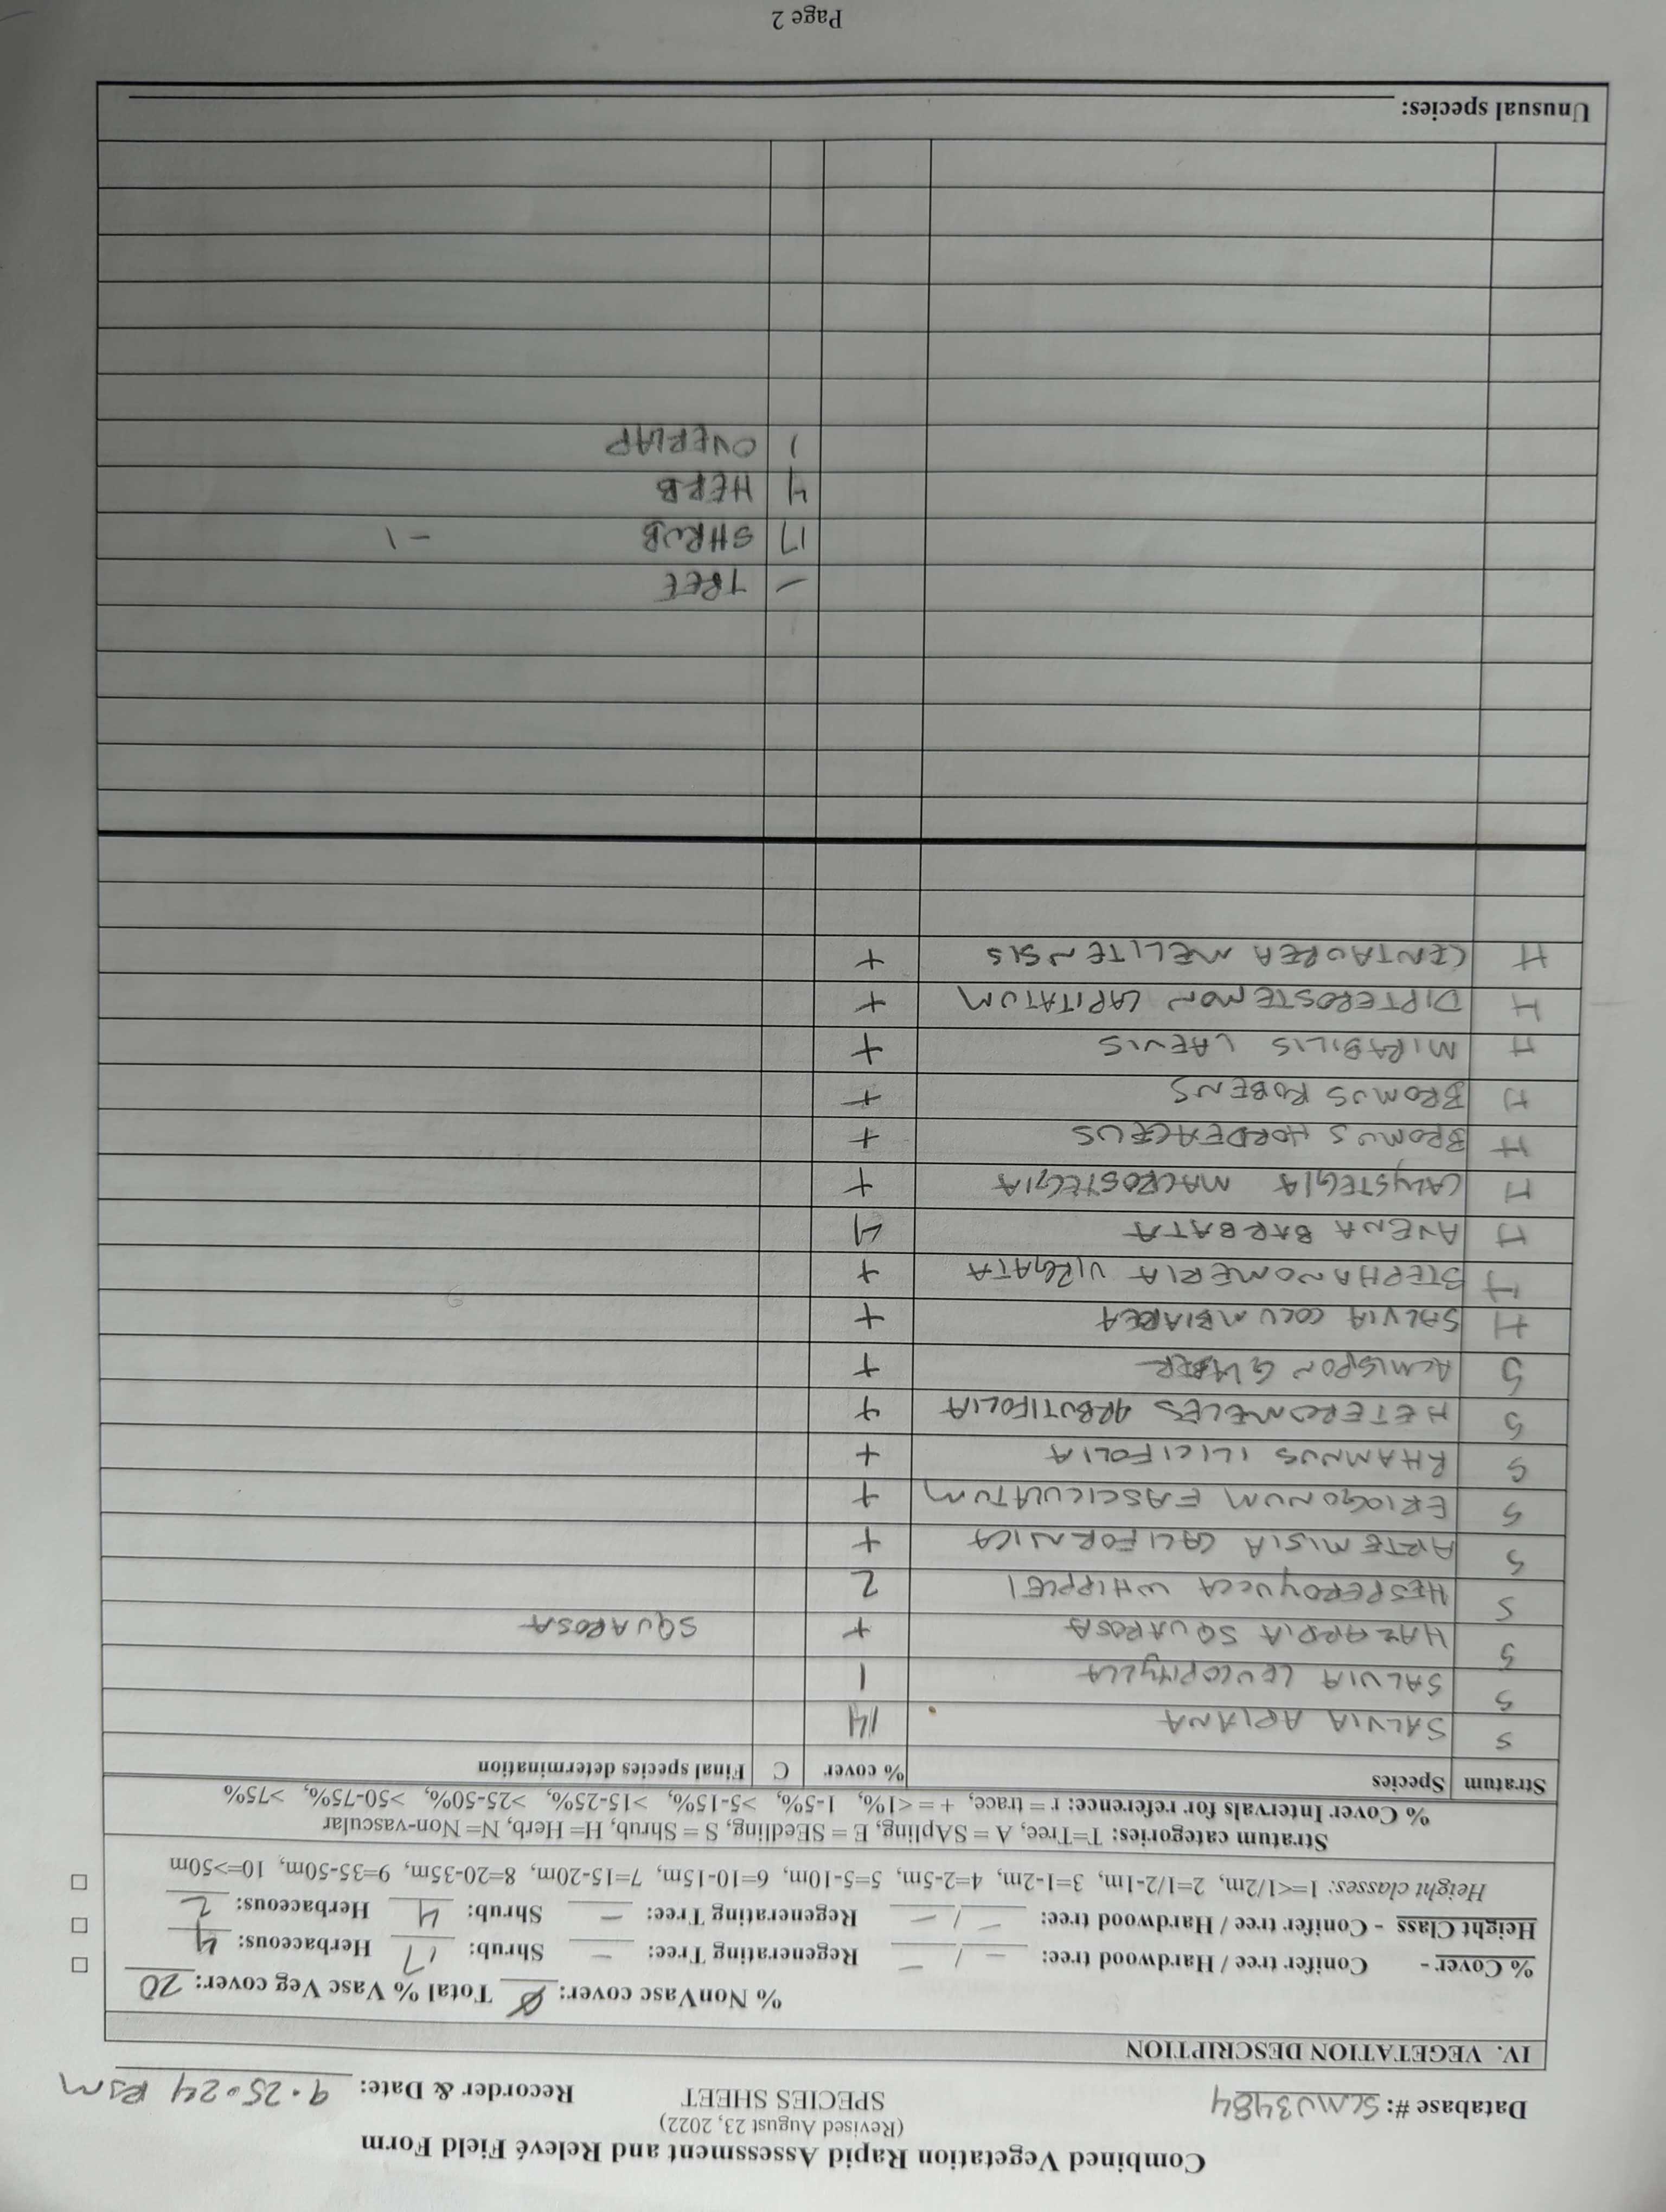 Combined Vegetation Rapid Assessment and Relevé Field Form
(Revised August 23, 2022)
Database #: SCMU3484 SPECIES SHEET Recorder & Date: 9.25.24 RSM
IV. VEGETATION DESCRIPTION
% NonVasc cover: Ø Total % Vasc Veg cover: 20
% Cover - Conifer tree / Hardwood tree: — / — Regenerating Tree: — Shrub: 17 Herbaceous: 4
Height Class - Conifer tree / Hardwood tree: — / — Regenerating Tree: — Shrub: 4 Herbaceous: 2
Height classes: 1=<1/2m, 2=1/2-1m, 3=1-2m, 4=2-5m, 5=5-10m, 6=10-15m, 7=15-20m, 8=20-35m, 9=35-50m, 10=>50m
Stratum categories: T=Tree, A = SApling, E = SEedling, S = Shrub, H= Herb, N= Non-vascular
% Cover Intervals for reference: r = trace, + = <1%, 1-5%, >5-15%, >15-25%, >25-50%, >50-75%, >75%
Stratum Species % cover C Final species determination
S SALVIA APIANA 14
S SALVIA LEUCOPHYLLA 1
S HAZARDIA SQUAROSA + SQUAROSA
S HESPEROYUCCA WHIPPLEI 2
S ARTEMISIA CALIFORNICA +
S ERIOGONUM FASCICULATUM +
S RHAMNUS ILICIFOLIA +
S HETEROMELES ARBUTIFOLIA +
S ACMISPON GLABER +
H SALVIA COLUMBIAREA +
H STEPHANOMERIA VIRGATA +
H AVENA BARBATA 4
H CALYSTEGIA MACROSTEGIA +
H BROMUS HORDEACEUS +
H BROMUS RUBENS +
H MIRABILIS LAEVIS +
H DIPTEROSTEMON CAPITATUM +
H CENTAUREA MELITENSIS +
— TREE
17 SHRUB -1
4 HERB
1 OVERLAP
Unusual species:
Page 2